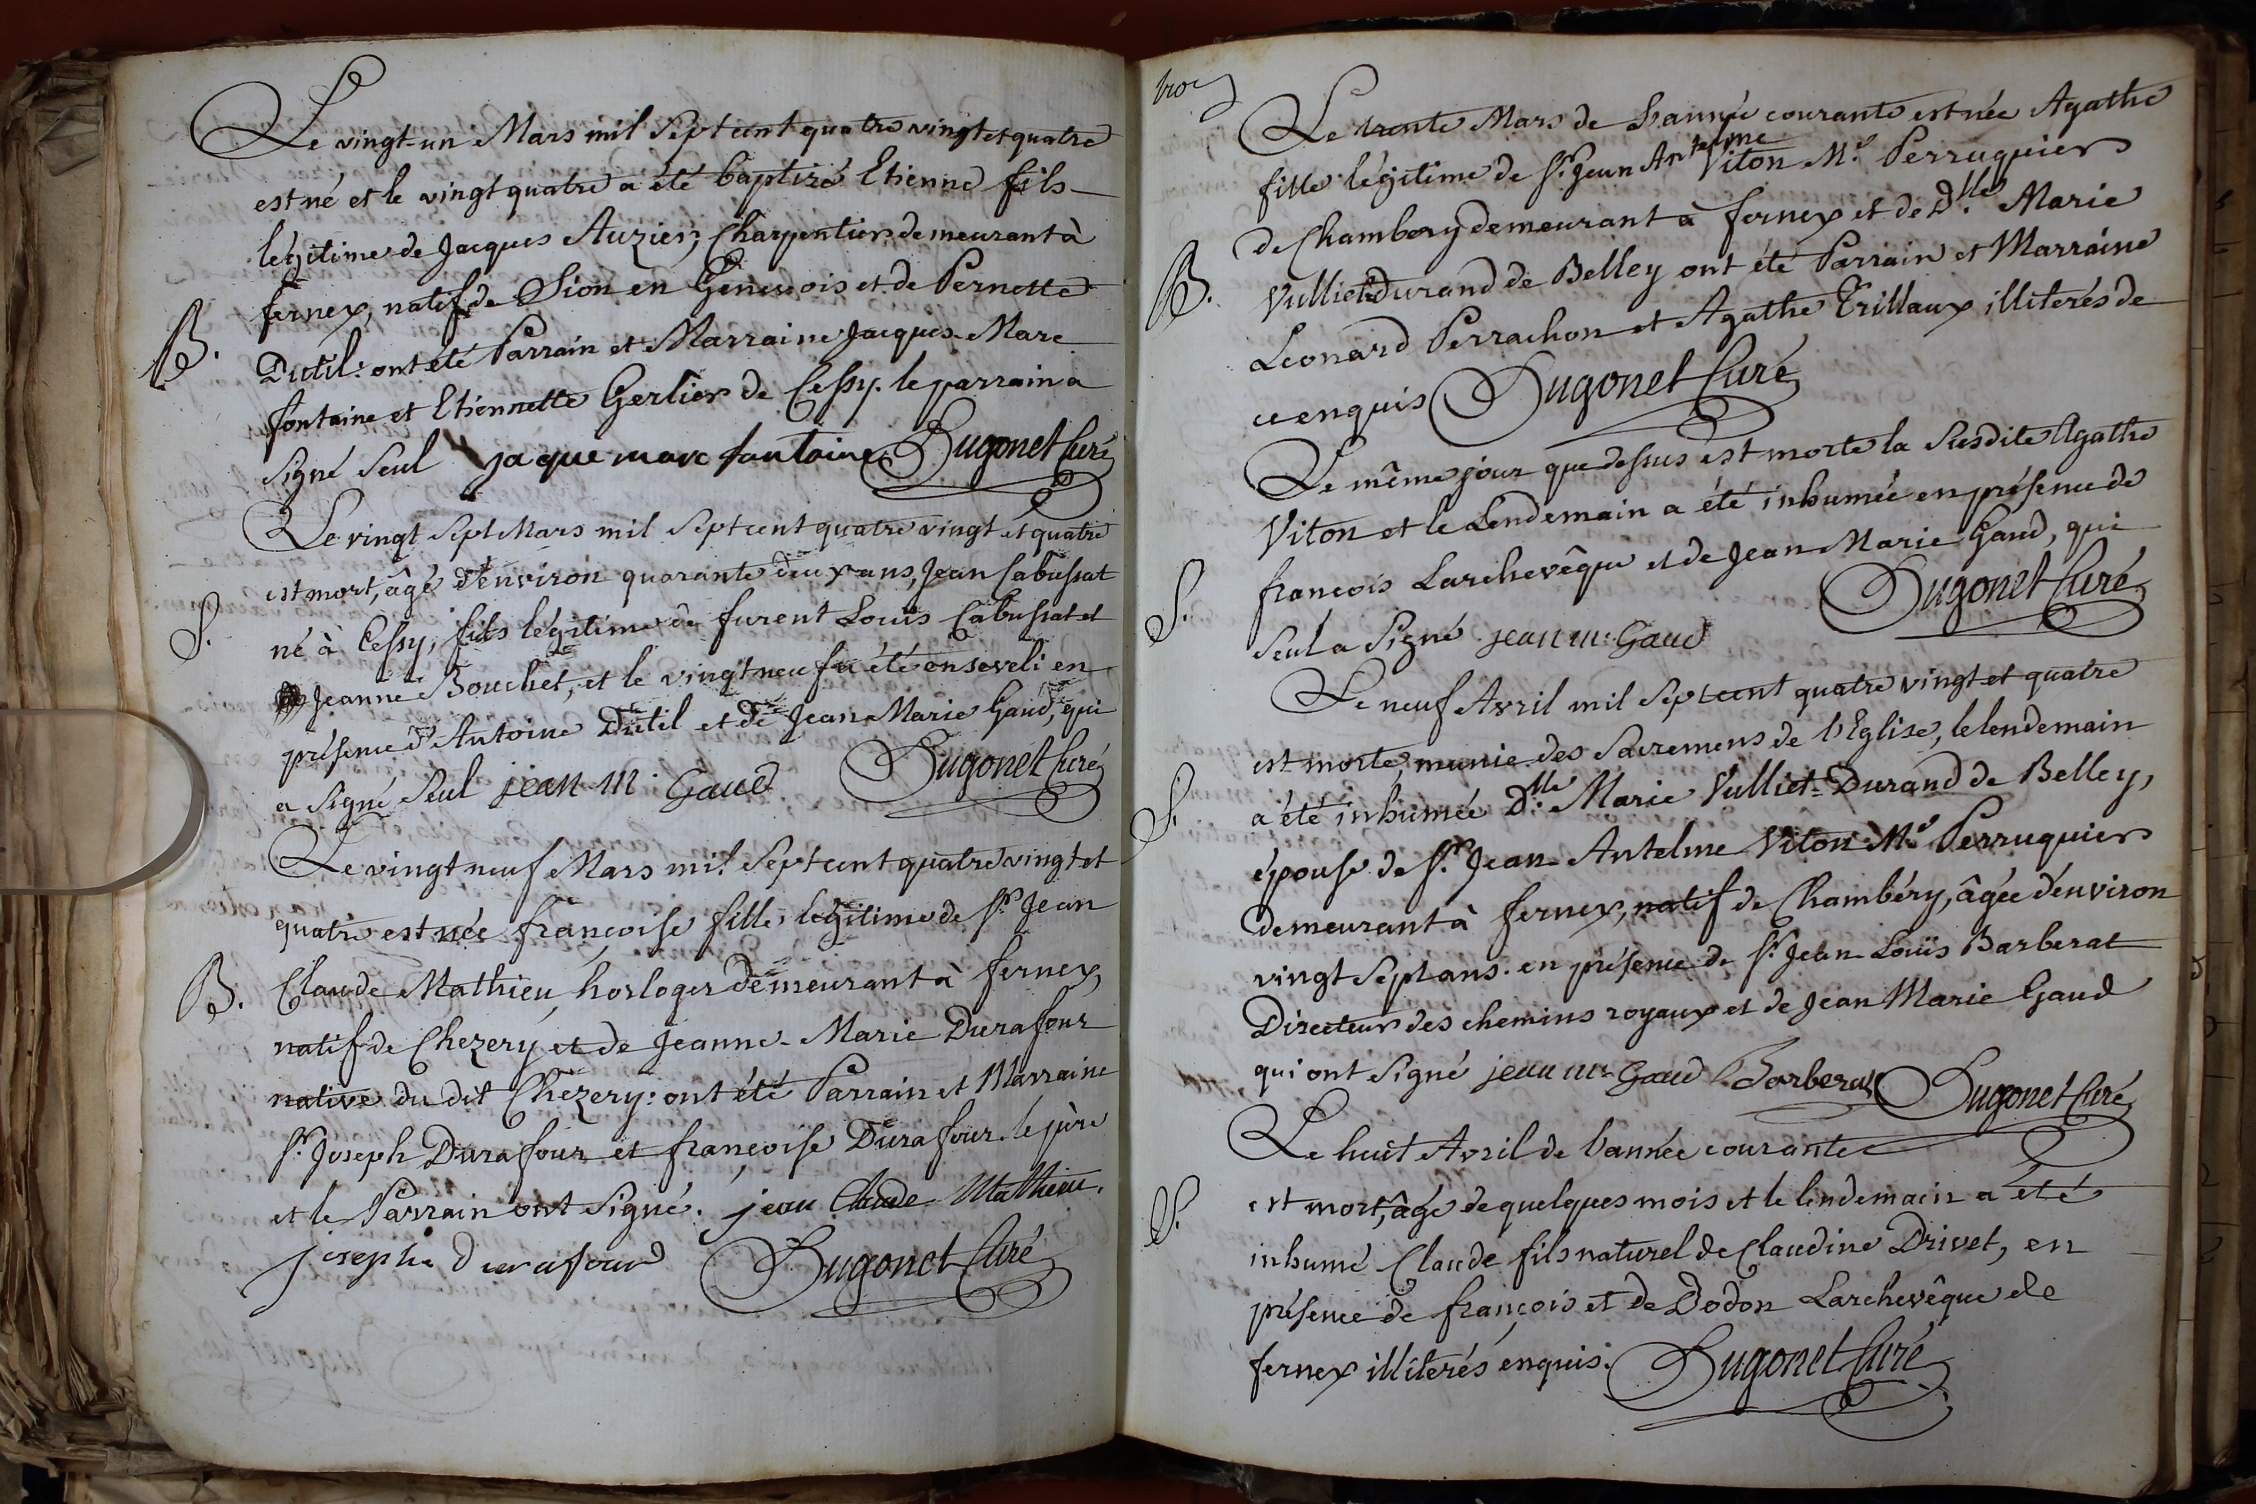 Le vingt-un Mars mil Sept cent quatre vingt et quatre
est né et le vingt quatre a été baptizé Etienne fils
légitime de Jacques Auzier, Charpentier demeurant à
fernex, natif de Sion en Genevois et de Pernette
B.
Dutil: ont été Parrain et Marraine Jacques-Marc
fontaine et Etiennette Gerlier de Cessy. le parrain a
signé seul jaque marc fontaine Dugonet Curé
Le vingt Sept Mars mil Sept cent quatre vingt et quatre
est mort, âgé d'environ quarante deux ans, Jean Cabussat
S.
né à Cessy, fils légitime de furent Louis Cabussat et
Jeanne Bouchet, et le vingt neuf a été enseveli en
présence d'Antoine Dutil et de Jean-Marie Gaud, qui
a Signé Seul jean m. Gaud Dugonet Curé
Le vingt neuf Mars mil Sept cent quatre vingt et
quatre est née françoise fille légitime de Sr. Jean
B.
Claude Mathieu, horloger demeurant à fernex,
natif de Chezery et de Jeanne-Marie Durafour
native du dit Chezery: ont été Parrain et Marraine
Sr. Joseph Durafour et françoise Durafour. le père
et le Parrain ont Signé. jean Claude Mathieu.
joseph durafour Dugonet Curé
Le trente Mars de l'année courante est née Agathe
fille légitime de Sr. Jean Antelme Viton Me. Perruquier
de Chambery demeurant à fernex et de Dlle. Marie
B.
Vulliet=Durand de Belley ont été Parrain et Marraine
Leonard Perrachon et Agathe Trillaux illiterés de
ce enquis Dugonet Curé
Le même jour que dessus est morte la Susdite Agathe
Viton et le Lendemain a été inhumée en présence de
S.
francois Larchevêque et de Jean-Marie Gaud, qui
Seul a Signé jean m. Gaud Dugonet Curé
Le neuf Avril mil Sept cent quatre vingt et quatre
est morte, munie des Sacremens de l'Eglise, le lendemain
S.
a été inhumée Dlle. Marie Vulliet=Durand de Belley,
épouse de Sr. Jean-Antelme Viton Me. Perruquier
demeurant à fernex, natif de Chambéry, âgée d'environ
vingt Sept ans. en présence de Sr. Jean-Louis Barberat
Directeur des chemins royaux et de Jean Marie Gaud
qui ont Signé jean m. Gaud Barberat Dugonet Curé
Le huit Avril de l'année courante
S.
est mort, âgé de quelques mois et le lendemain a été
inhumé Claude fils naturel de Claudine Drivet, en
présence de françois et de Dodon Larchevêque de
fernex illiterés enquis. Dugonet Curé